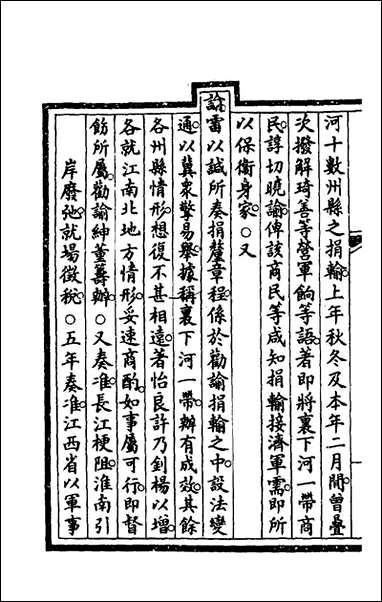 河十數州縣之捐輸上年秋冬及本年二月間曾疊
次撥解琦善等營軍餉等語著即將裏下河一帶商
民諄切曉諭俾該商民等咸知捐輸接濟軍需即所
以保衞身家○又
諭雷以諴所奏捐釐章程係於勸諭捐輸之中設法變
通以冀衆擎易舉據稱裏下河一帶辦有成效其餘
各州縣情形想復不甚相遠著怡良許乃釗楊以增
各就江南北地方情形妥速商酌如事屬可行即督
飭所屬勸諭紳董籌辦○又奏准長江梗阻淮南引
岸廢弛就場徵稅○五年奏准江西省以軍事